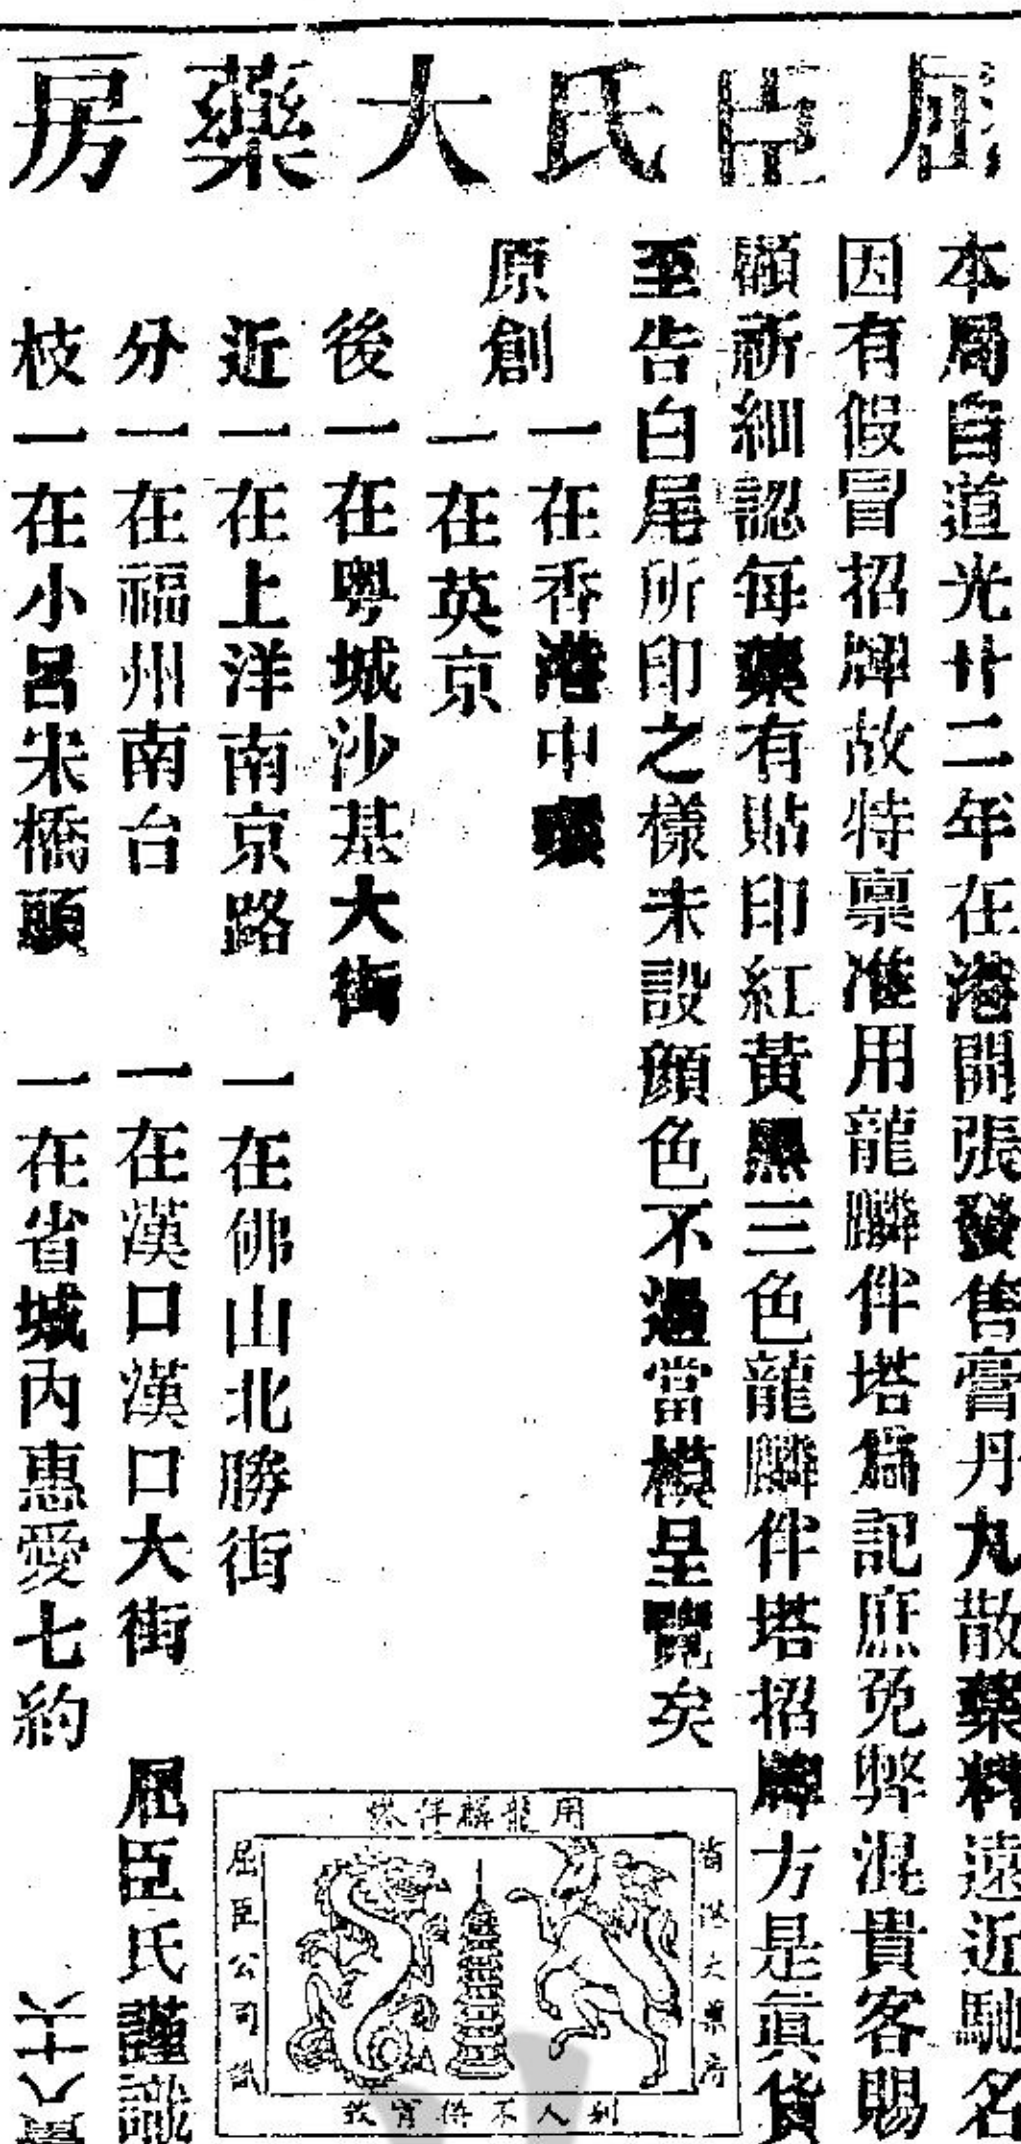 屈臣氏大藥房
本局自道光廿二年在港開張發售膏丹丸散藥料遠近馳名
因有假冒招牌故特禀准用龍麟伴塔爲記庶免弊混貴客賜
顧祈細認每藥有貼印紅黃黑三色龍麟伴塔招牌方是眞貨
至告白尾所印之樣未設顔色不過當模呈覽矣
原創
一在香港中環
一在英京
後一在粤城沙基大街
近一在上洋南京路 一在佛山北勝街
分一在福州南台 一在漢口漢口大街 屈臣氏謹識
枝一在小呂宋橋頭 一在省城內惠愛七約
用龍麟伴塔
省港大藥房
屈臣公司
別人不得